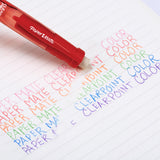 Paper Mate
PAPER MATE CLEARPOINT COLOR
PAPER MATE CLEARPOINT COLOR
PAPER MATE CLEARPOINT COLOR
PAPER MATE CLEARPOINT COLOR
PAPER MAT CLEARPOINT COLOR
PAPER = CLEARPOINT COLOR